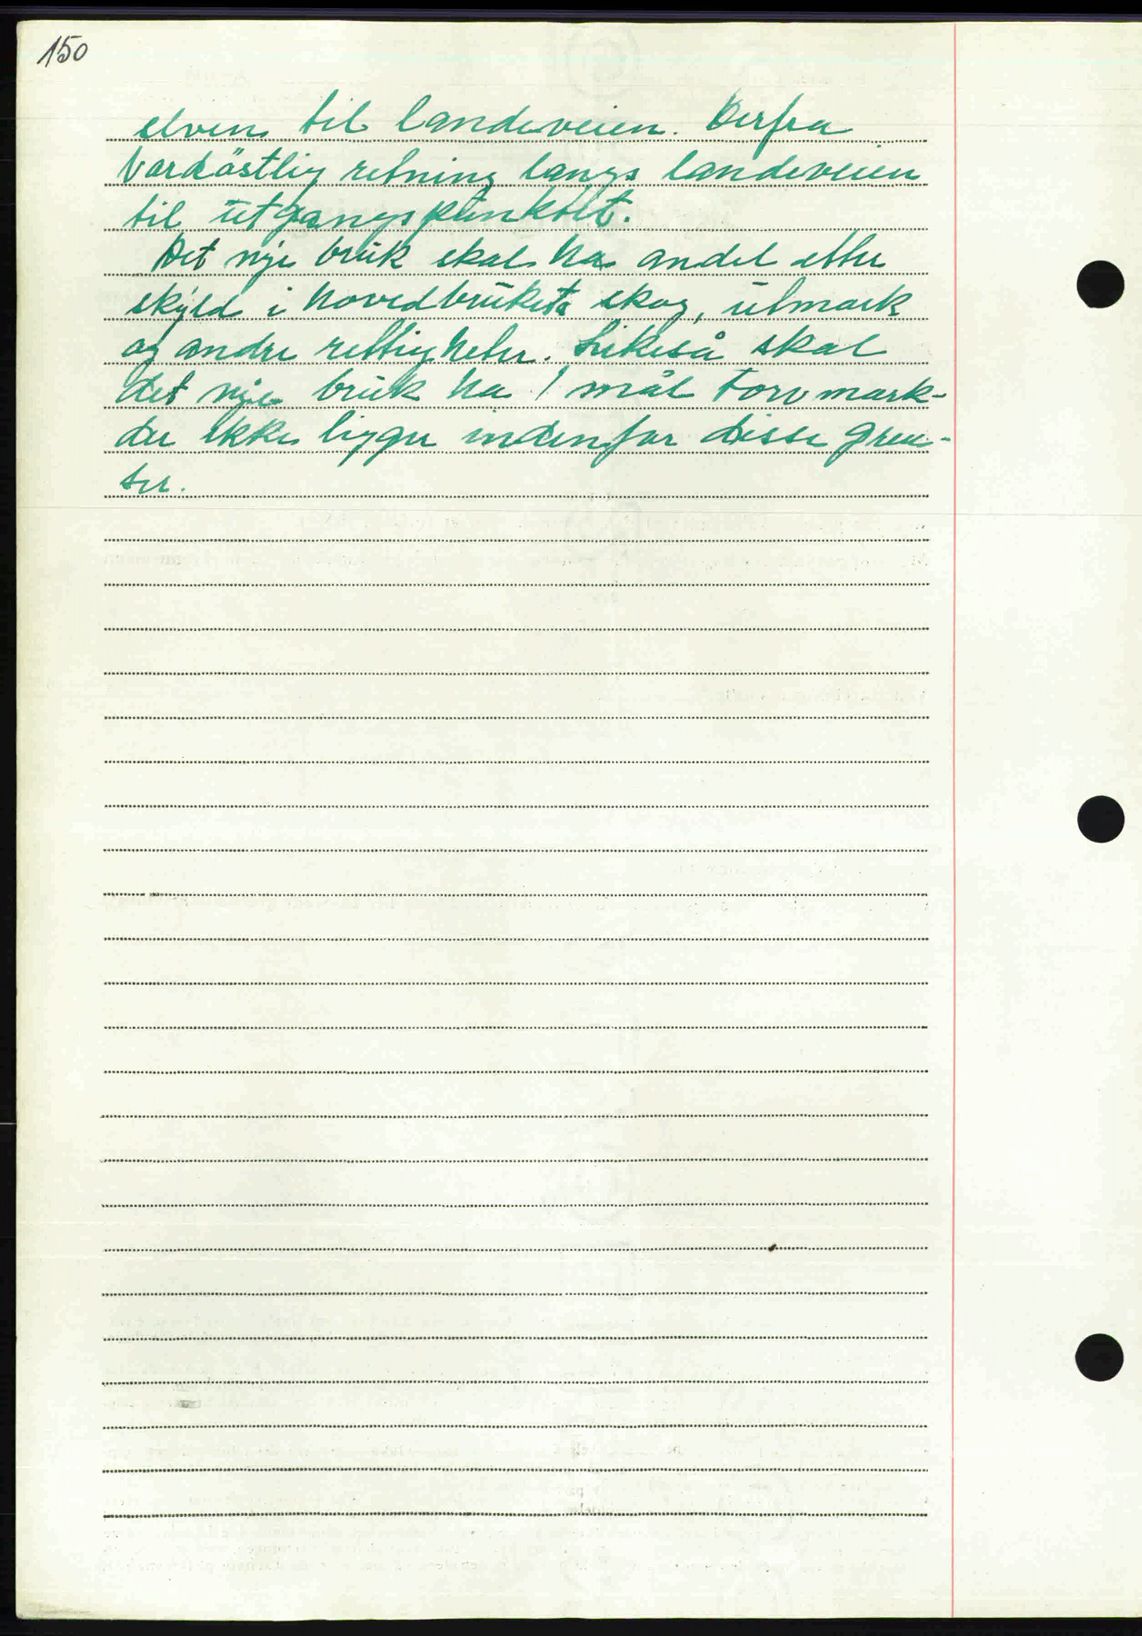 150
elven til landeveien. Derfra
Nordöstlig retning langs landeveien
til utgangspunktet.
Det nye bruk skal ha andel efter
skyld i hovedbrukets skog, utmark
og andre rettigheter. Likeså skal
det nye bruk ha 1 mål torvmark-
der ikke ligger indenfor disse gren-
ser.